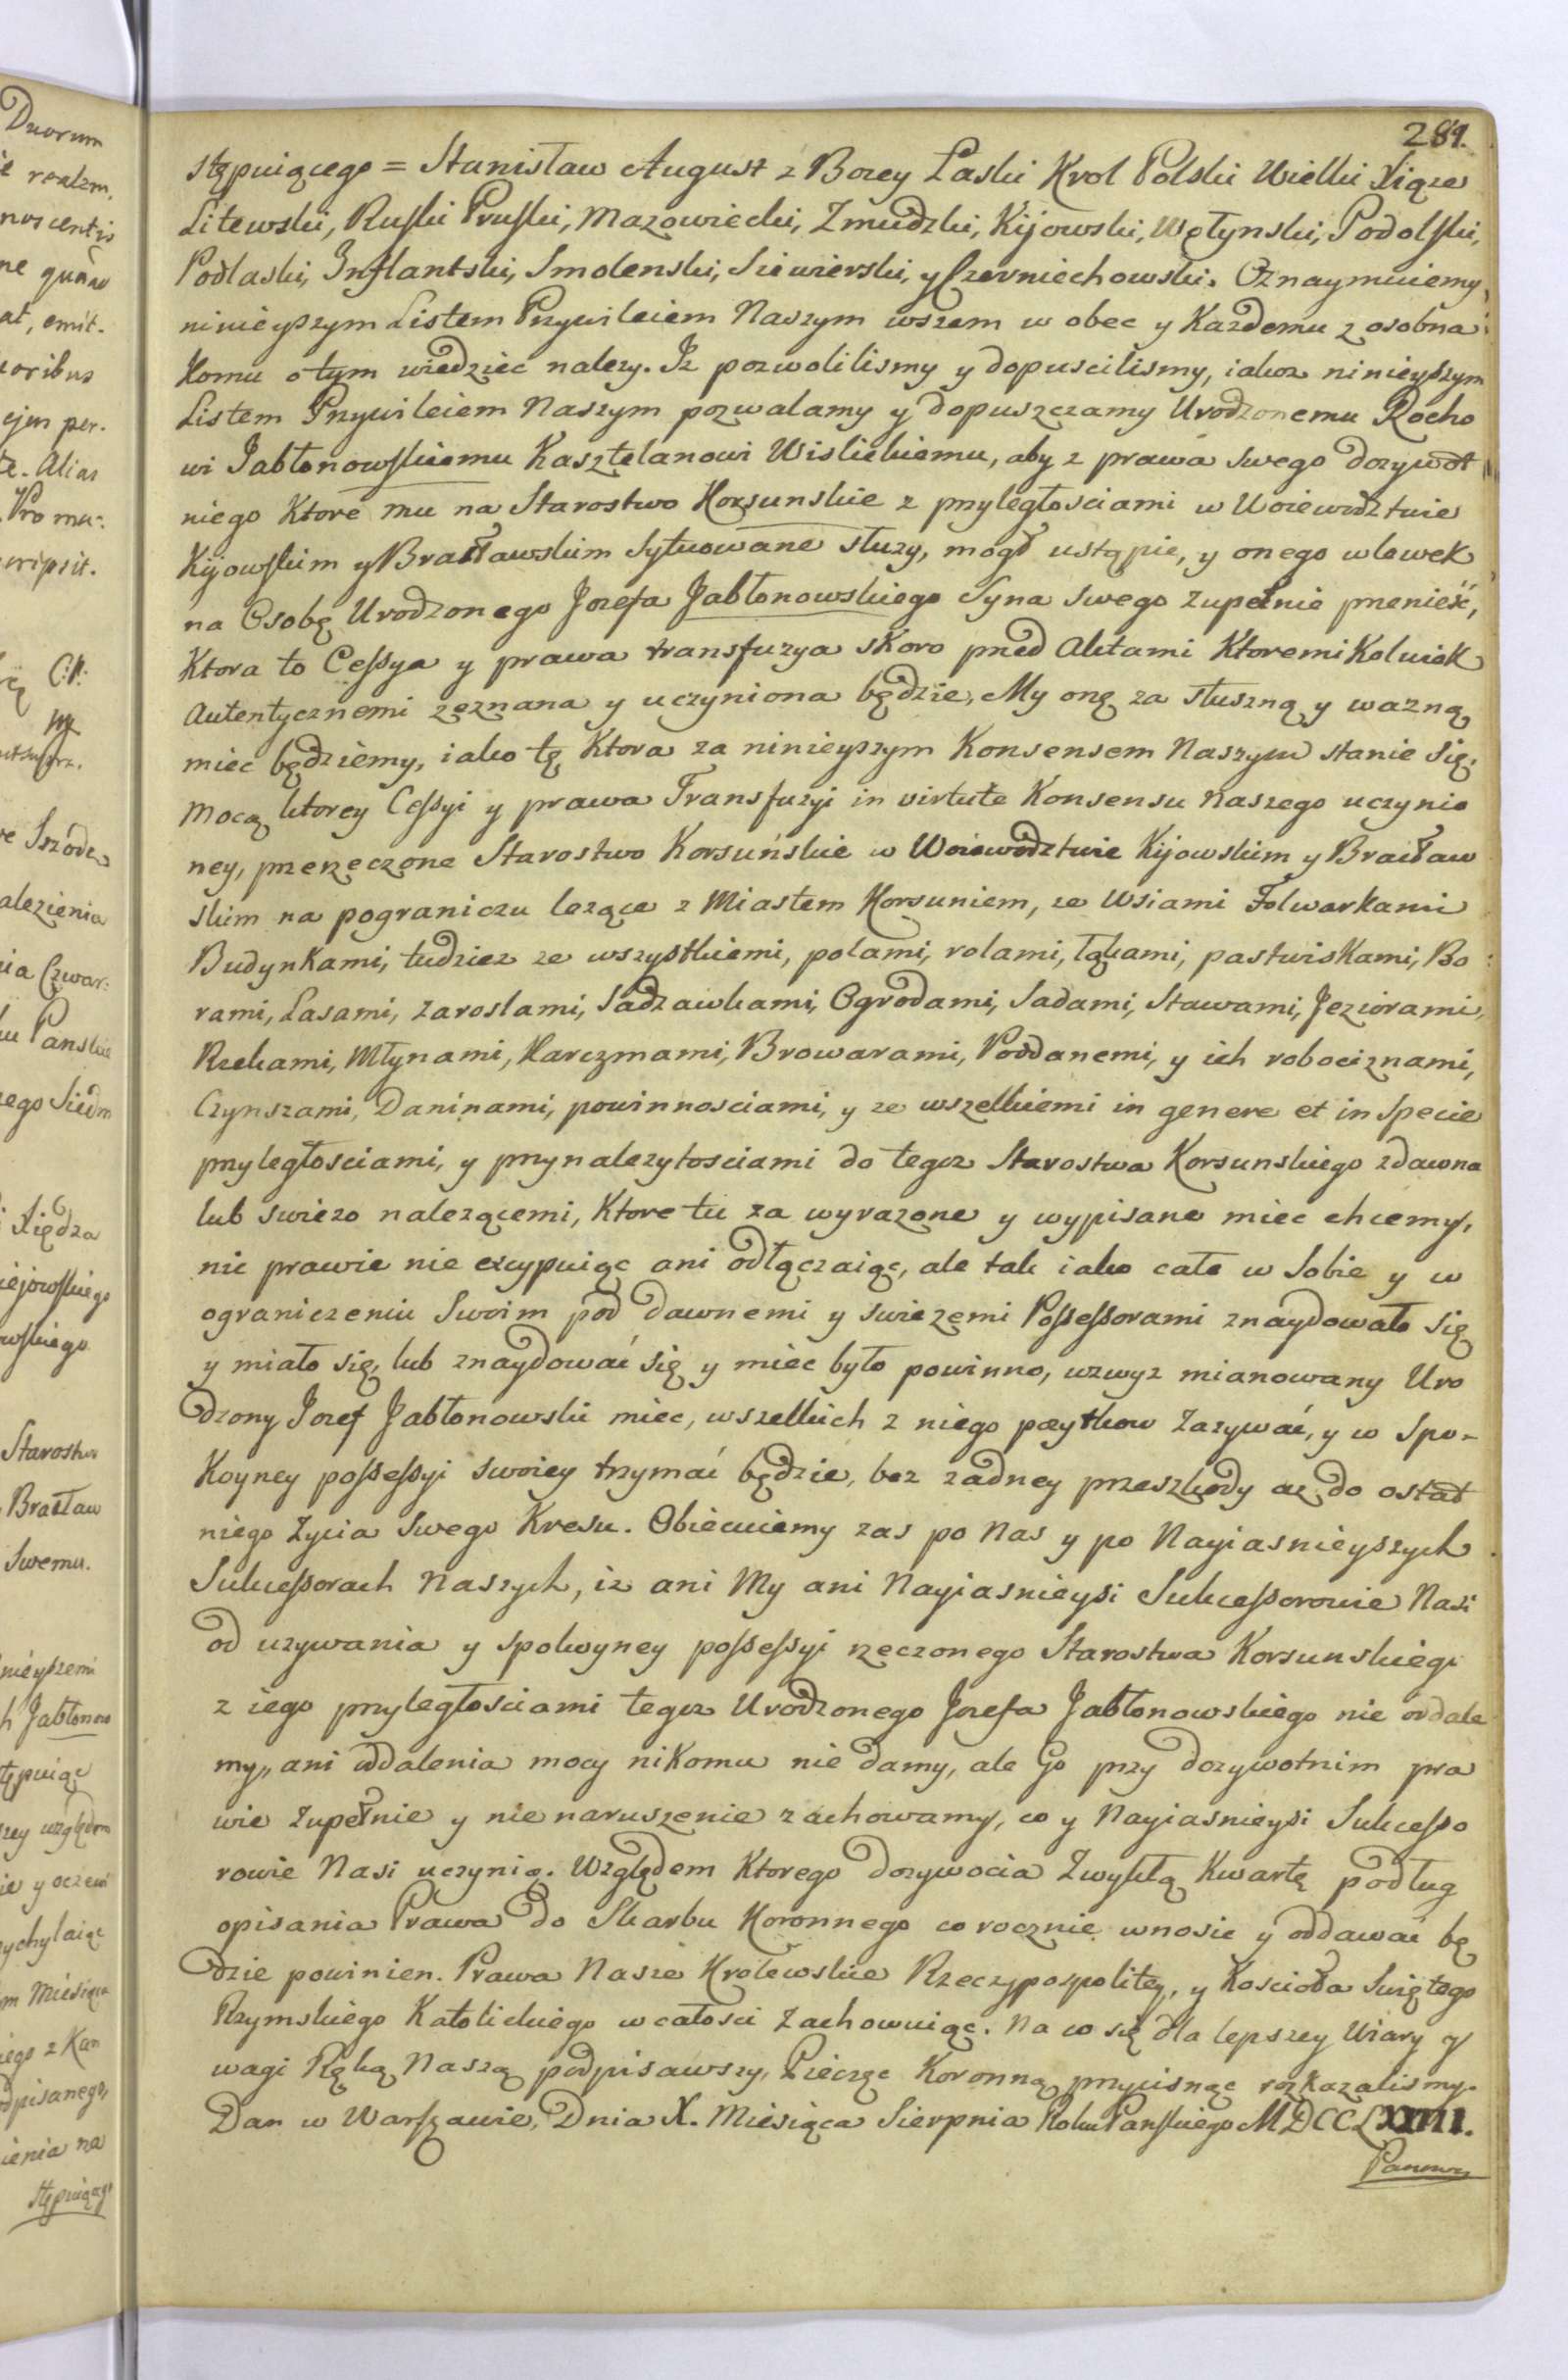 281.
stępuiącego = Stanisław August z Bozey Łaski Krol Polski Wielki Xiąze
Litewski, Ruski Pruski, Mazowiecki, Zmudzki, Kijowski, Wołynski, Podolski,
Podlaski, Inflantski, Smolenski, Siewierski, y Czerniechowski. Oznaymuiemy
ninieyszym Listem Przywileiem Naszym wszem w obec y Kazdemu z osobna
Komu o tym wiedziec nalezy. Iz pozwolilismy y dopuscilismy, iakoz ninieyszym
Listem Przywileiem Naszym pozwalamy y dopuszczamy Urodzonemu Rocho
wi Jabłonowskiemu Kasztelanowi Wislickiemu, aby z prawa swego dozywot
niego Ktore mu na Starostwo Korsunskie z przyległosciami w Woiewodztwie
Kijowskim y Bracławskim sytuowane słuzy, mogł ustąpic, y onego wlewek
na Osobę Urodzonego Jozefa Jabłonowskiego Syna swego zupełnie przenieść,
Ktora to Cessya y prawa transfuzya skoro przed Aktami Ktoremi Kolwiek
Autentycznemi zeznana y uczyniona będzie, My onę za słuszną y wazną
miec będziemy, iako tę Ktora za ninieyszym Konsensem Naszym stanie się.
Mocą ktorey Cessyi y prawa Transfuzyi in virtute Konsensu Naszego uczynio
ney, przerzeczone Starostwo Korsuńskie w Woiewodztwie Kijowskim y Bracław
skim na pograniczu lezące z Miastem Korsuniem, ze Wsiami Folwarkami
Budynkami, tudziez ze wszystkiemi, polami, rolami, łąkami, pastwiskami, Bo
rami, Lasami, zaroslami, Sadzawkami, Ogrodami, Sadami, Stawami, Jeziorami,
Rzekami, Młynami, Karczmami, Browarami, Poddanemi, y ich robociznami,
Czynszami, Daninami, powinnosciami, y ze wszelkiemi in genere et in specie
przyległosciami, y przynalezytosciami do tegoz Starostwa Korsunskiego zdawna
lub swiezo nalezącemi, Ktore tu za wyrazone y wypisane miec chcemy,
nic prawie nie excypuiąc ani odłączaiąc, ale tak iako całe w Sobie y w
ograniczeniu Swoim pod dawnemi y swiezemi Possessorami znaydowało się
y miało się, lub znaydować się y miec było powinno, wzwyz mianowany Uro
dzony Jozef Jabłonowski miec, wszelkich z niego pozytkow zazywać, y w Spo-
Koyney possessyi swoiey trzymać będzie, bez zadney przeszkody az do ostat
niego zycia swego Kresu. Obiecuiemy zas po Nas y po Nayiasnieyszych
Sukcessorach Naszych, iz ani My ani Nayiasnieysi Sukcessorowie Nasi
od uzywania y spokoyney possessyi rzeczonego Starostwa Korsunskiego
z iego przyległosciami tegoz Urodzonego Jozefa Jabłonowskiego nie oddale
my,, ani oddalenia mocy nikomu nie damy, ale Go przy dozywotnim pra
wie zupełnie y nienaruszenie zachowamy, co y Nayiasnieysi Sukcesso
rowie Nasi uczynią. Względem Ktorego dozywocia Zwykłą Kwartę podług
opisania Prawa do Skarbu Koronnego co rocznie wnosic y oddawać bę
dzie powinien. Prawa Nasze Krolewskie Rzeczypospolitey, y Koscioła Swiętego
Rzymskiego Katolickiego w całosci zachowuiąc. Na co się dla lepszey Wiary y
wagi Ręką Naszą podpisawszy, Pieczęc Koronną przycisnąc rozkazalismy.
Dan w Warszawie, Dnia X. Miesiąca Sierpnia Roku Panskiego MDCCLXXIIII.
Panowa